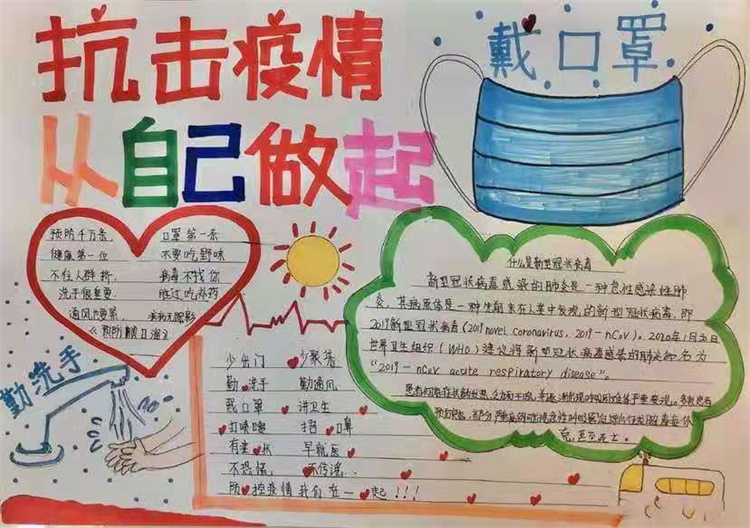 抗击疫情
从自己做起
戴口罩
预防千万条， 口罩第一条
健康第一位 不要吃野味
不往人群挤， 病毒不找你
洗手很重要 胜过吃补药
勤洗手
少出门 少聚集
勤洗手 勤通风
戴口罩 讲卫生
打喷嚏 捂口鼻
有症状 早就医
不恐慌， 不传谣
防控疫情我们在一起！！！
什么是新型冠状病毒
新型冠状病毒感染的肺炎是一种急性感染性肺
炎，其病原体是一种先前未在人类中发现的新型冠状病毒，即
2019新型冠状病毒（2019 novel coronavirus，2019-nCoV）。2020年1月
世界卫生组织（WHO）建议将新型冠状病毒感染的肺炎命名为
"2019-nCoV acute respiratory disease"。